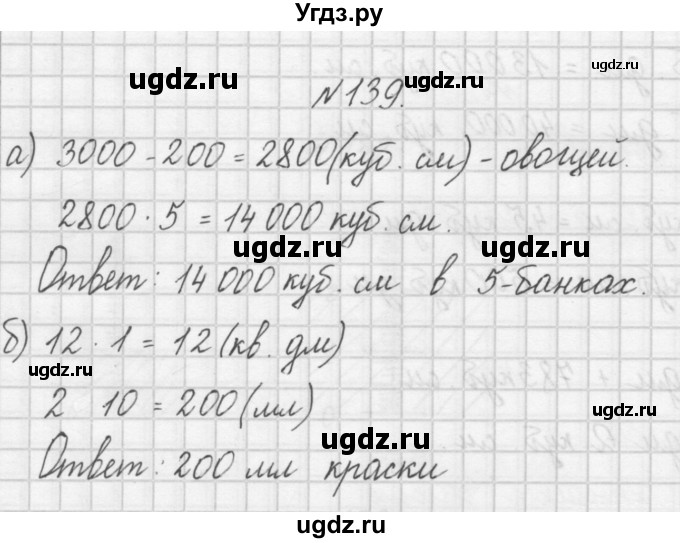 Угдз.ру
ugdz.ru ugdz.ru ugdz.ru
№139.
а) 3000 - 200 = 2800 (куб. см) - овощей.
2800 · 5 = 14 000 куб. см.
ugdz.ru ugdz.ru
Ответ: 14 000 куб. см в 5-банках.
б) 12 · 1 = 12 (кв. дм)
ugdz.ru
2 10 = 200 (мл)
ugdz.ru ugdz.ru
Ответ: 200 мл краски
ugdz.ru